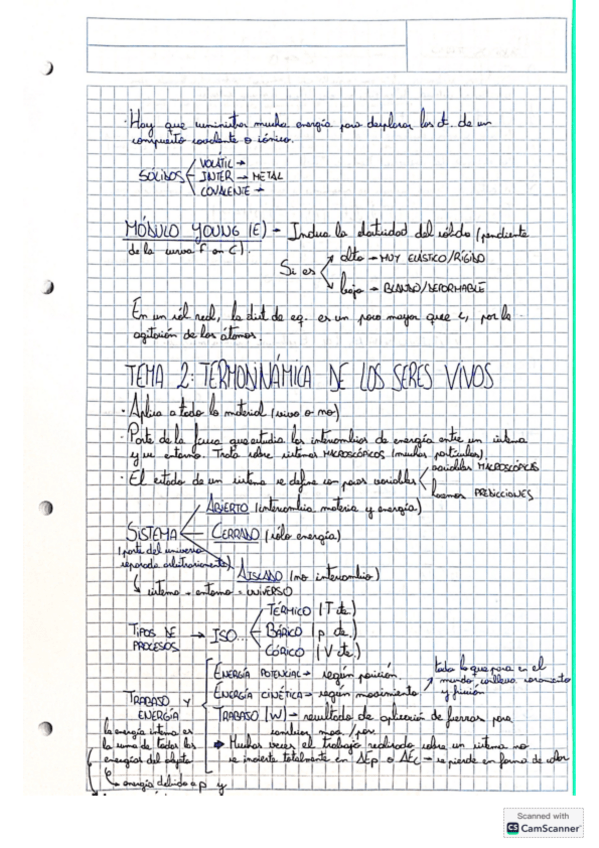 · Hay que suministrar mucha energía para desplazar los át. de un
compuesto covalente o iónico.
SÓLIDOS
VOLÁTIL →
INTER → METAL
COVALENTE →
MÓDULO YOUNG (E) → Indica la elasticidad del sólido (pendiente
de la curva F en C).
Si es
alto → MUY ELÁSTICO/RÍGIDO
bajo → BLANDO/DEFORMABLE
En un sól real, la dist de eq. es un poco mayor que c, por la
agitación de los átomos.
TEMA 2: TERMODINÁMICA DE LOS SERES VIVOS
· Aplica a todo lo material (vivo o no)
· Parte de la física que estudia los intercambios de energía entre un sistema
y su entorno. Trata sobre sistemas MACROSCÓPICOS (muchas partículas).
· El estado de un sistema se define con pocas variables
variables MACROSCÓPICAS
hacemos PREDICCIONES
SISTEMA
(parte del universo
separada arbitrariamente)
ABIERTO (intercambia materia y energía)
CERRADO (sólo energía)
AISLADO (no intercambio)
sistema + entorno = UNIVERSO
TIPOS DE
PROCESOS
→ ISO...
TÉRMICO (T cte.)
BÁRICO (p cte.)
CÓRICO (V cte.)
TRABAJO Y
ENERGÍA
ENERGÍA POTENCIAL → según posición.
ENERGÍA CINÉTICA → según movimiento
todo lo que pasa en el
mundo conlleva rozamiento
y fricción
TRABAJO (W) → resultado de aplicación de fuerzas para
cambios mov./pos
→ Muchas veces el trabajo realizado sobre un sistema no
se invierte totalmente en ΔEp o ΔEc → se pierde en forma de calor
la energía interna es
la suma de todas las
energías del objeto
energía debido a p y
Scanned with
CS CamScanner